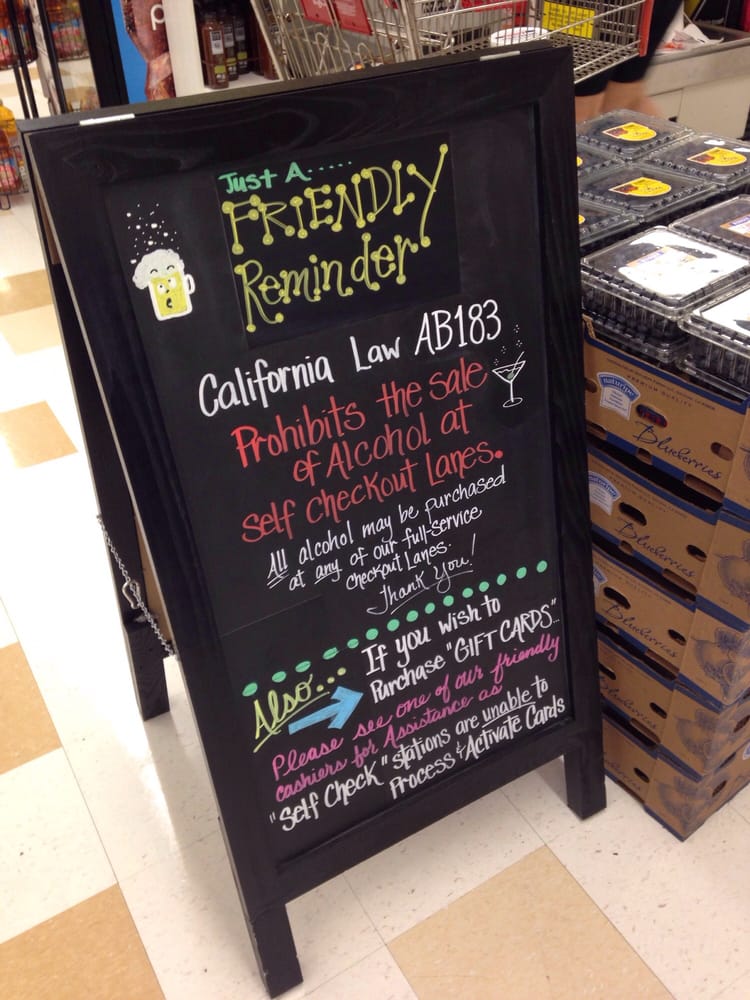 Just A.....
FRIENDLY
Reminder
California Law AB183
Prohibits the sale
of Alcohol at
self checkout Lanes.
All alcohol may be purchased
at any of our full-service
checkout Lanes.
Thank You!
Also...
If you wish to
Purchase "GIFT CARDS"...
Please see one of our friendly
cashiers for Assistance as
"Self Check" stations are unable to
Process & Activate Cards
naturipe
PREMIUM QUALITY
Blueberries
Blueberries
Blueberries